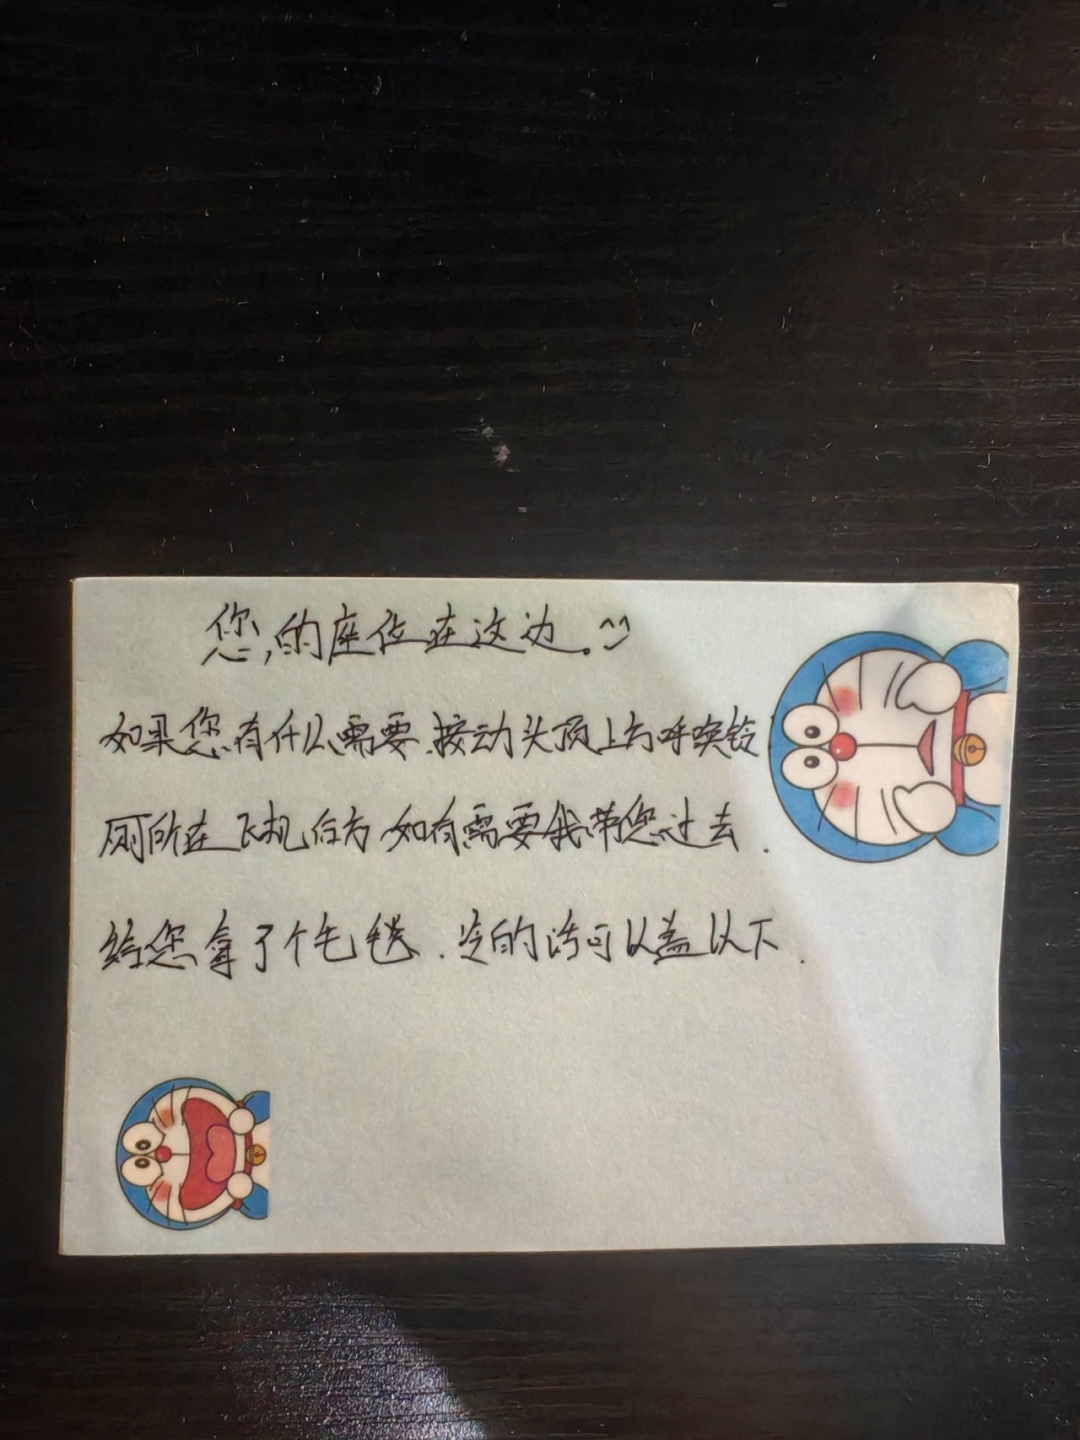 您的座位在这边。^^
如果您有什么需要.按动头顶上方呼唤铃
厕所在飞机后方 如有需要我带您过去.
给您拿了个毛毯.冷的话可以盖以下.